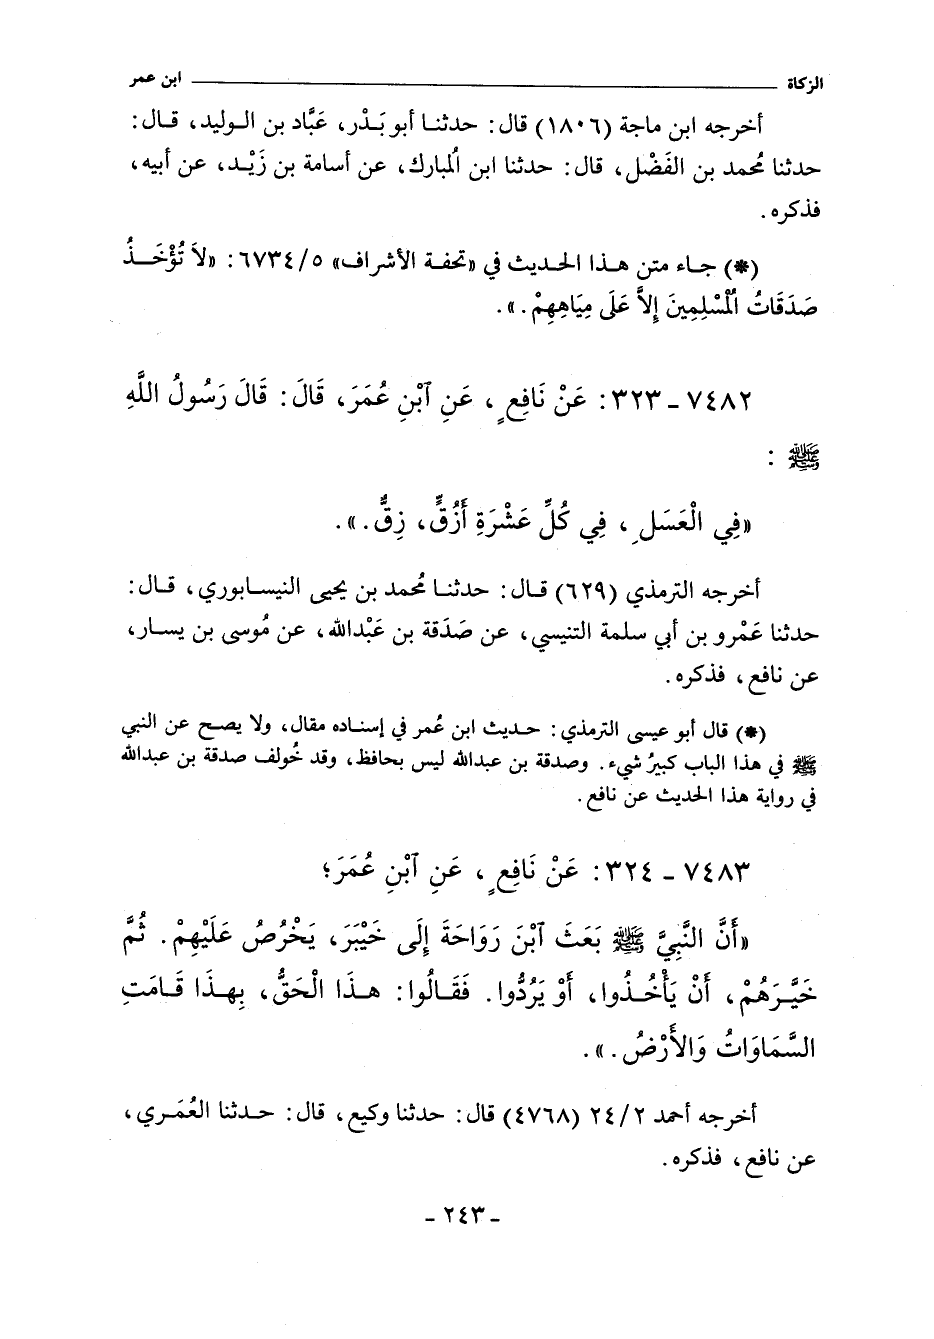 الزكاة ابن عمر
أخرجه ابن ماجة (١٨٠٦) قال: حدثنا أبو بَدْر، عَبَّاد بن الوليد، قال:
حدثنا مُحمد بن الفَضْل، قال: حدثنا ابن المُبارك، عن أسامة بن زَيْد، عن أبيه،
فذكره.
(*) جاء متن هذا الحديث في «تحفة الأشراف» ٦٧٣٤/٥: «لاَ تُؤْخَذُ
صَدَقَاتُ الْمُسْلِمِينَ إِلاَّ عَلَى مِيَاهِهِمْ.».
٧٤٨٢ - ٣٢٣: عَنْ نَافِعٍ، عَنِ ٱبْنِ عُمَرَ، قَالَ: قَالَ رَسُولُ اللَّهِ
ﷺ:
«فِي الْعَسَلِ، فِي كُلِّ عَشْرَةِ أَزُقٍّ، زِقٌّ.».
أخرجه الترمذي (٦٢٩) قال: حدثنا مُحمد بن يحيى النيسابوري، قال:
حدثنا عَمْرو بن أبي سلمة التنيسي، عن صَدَقة بن عَبْدالله، عن مُوسى بن يسار،
عن نافع، فذكره.
(*) قال أبو عيسى الترمذي: حديث ابن عُمر في إسناده مقال، ولا يصح عن النبي
ﷺ في هذا الباب كبيرُ شيء. وصدقة بن عبدالله ليس بحافظ، وقد خُولف صدقة بن عبدالله
في رواية هذا الحديث عن نافع.
٧٤٨٣ - ٣٢٤: عَنْ نَافِعٍ، عَنِ ٱبْنِ عُمَرَ؛
«أَنَّ النَّبِيَّ ﷺ بَعَثَ ٱبْنَ رَوَاحَةَ إِلَى خَيْبَرَ، يَخْرُصُ عَلَيْهِمْ. ثُمَّ
خَيَّرَهُمْ، أَنْ يَأْخُذُوا، أَوْ يَرُدُّوا. فَقَالُوا: هَذَا الْحَقُّ، بِهَذَا قَامَتِ
السَّمَاوَاتُ وَالأَرْضُ.».
أخرجه أحمد ٢٤/٢ (٤٧٦٨) قال: حدثنا وكيع، قال: حدثنا العُمَري،
عن نافع، فذكره.
- ٢٤٣ -